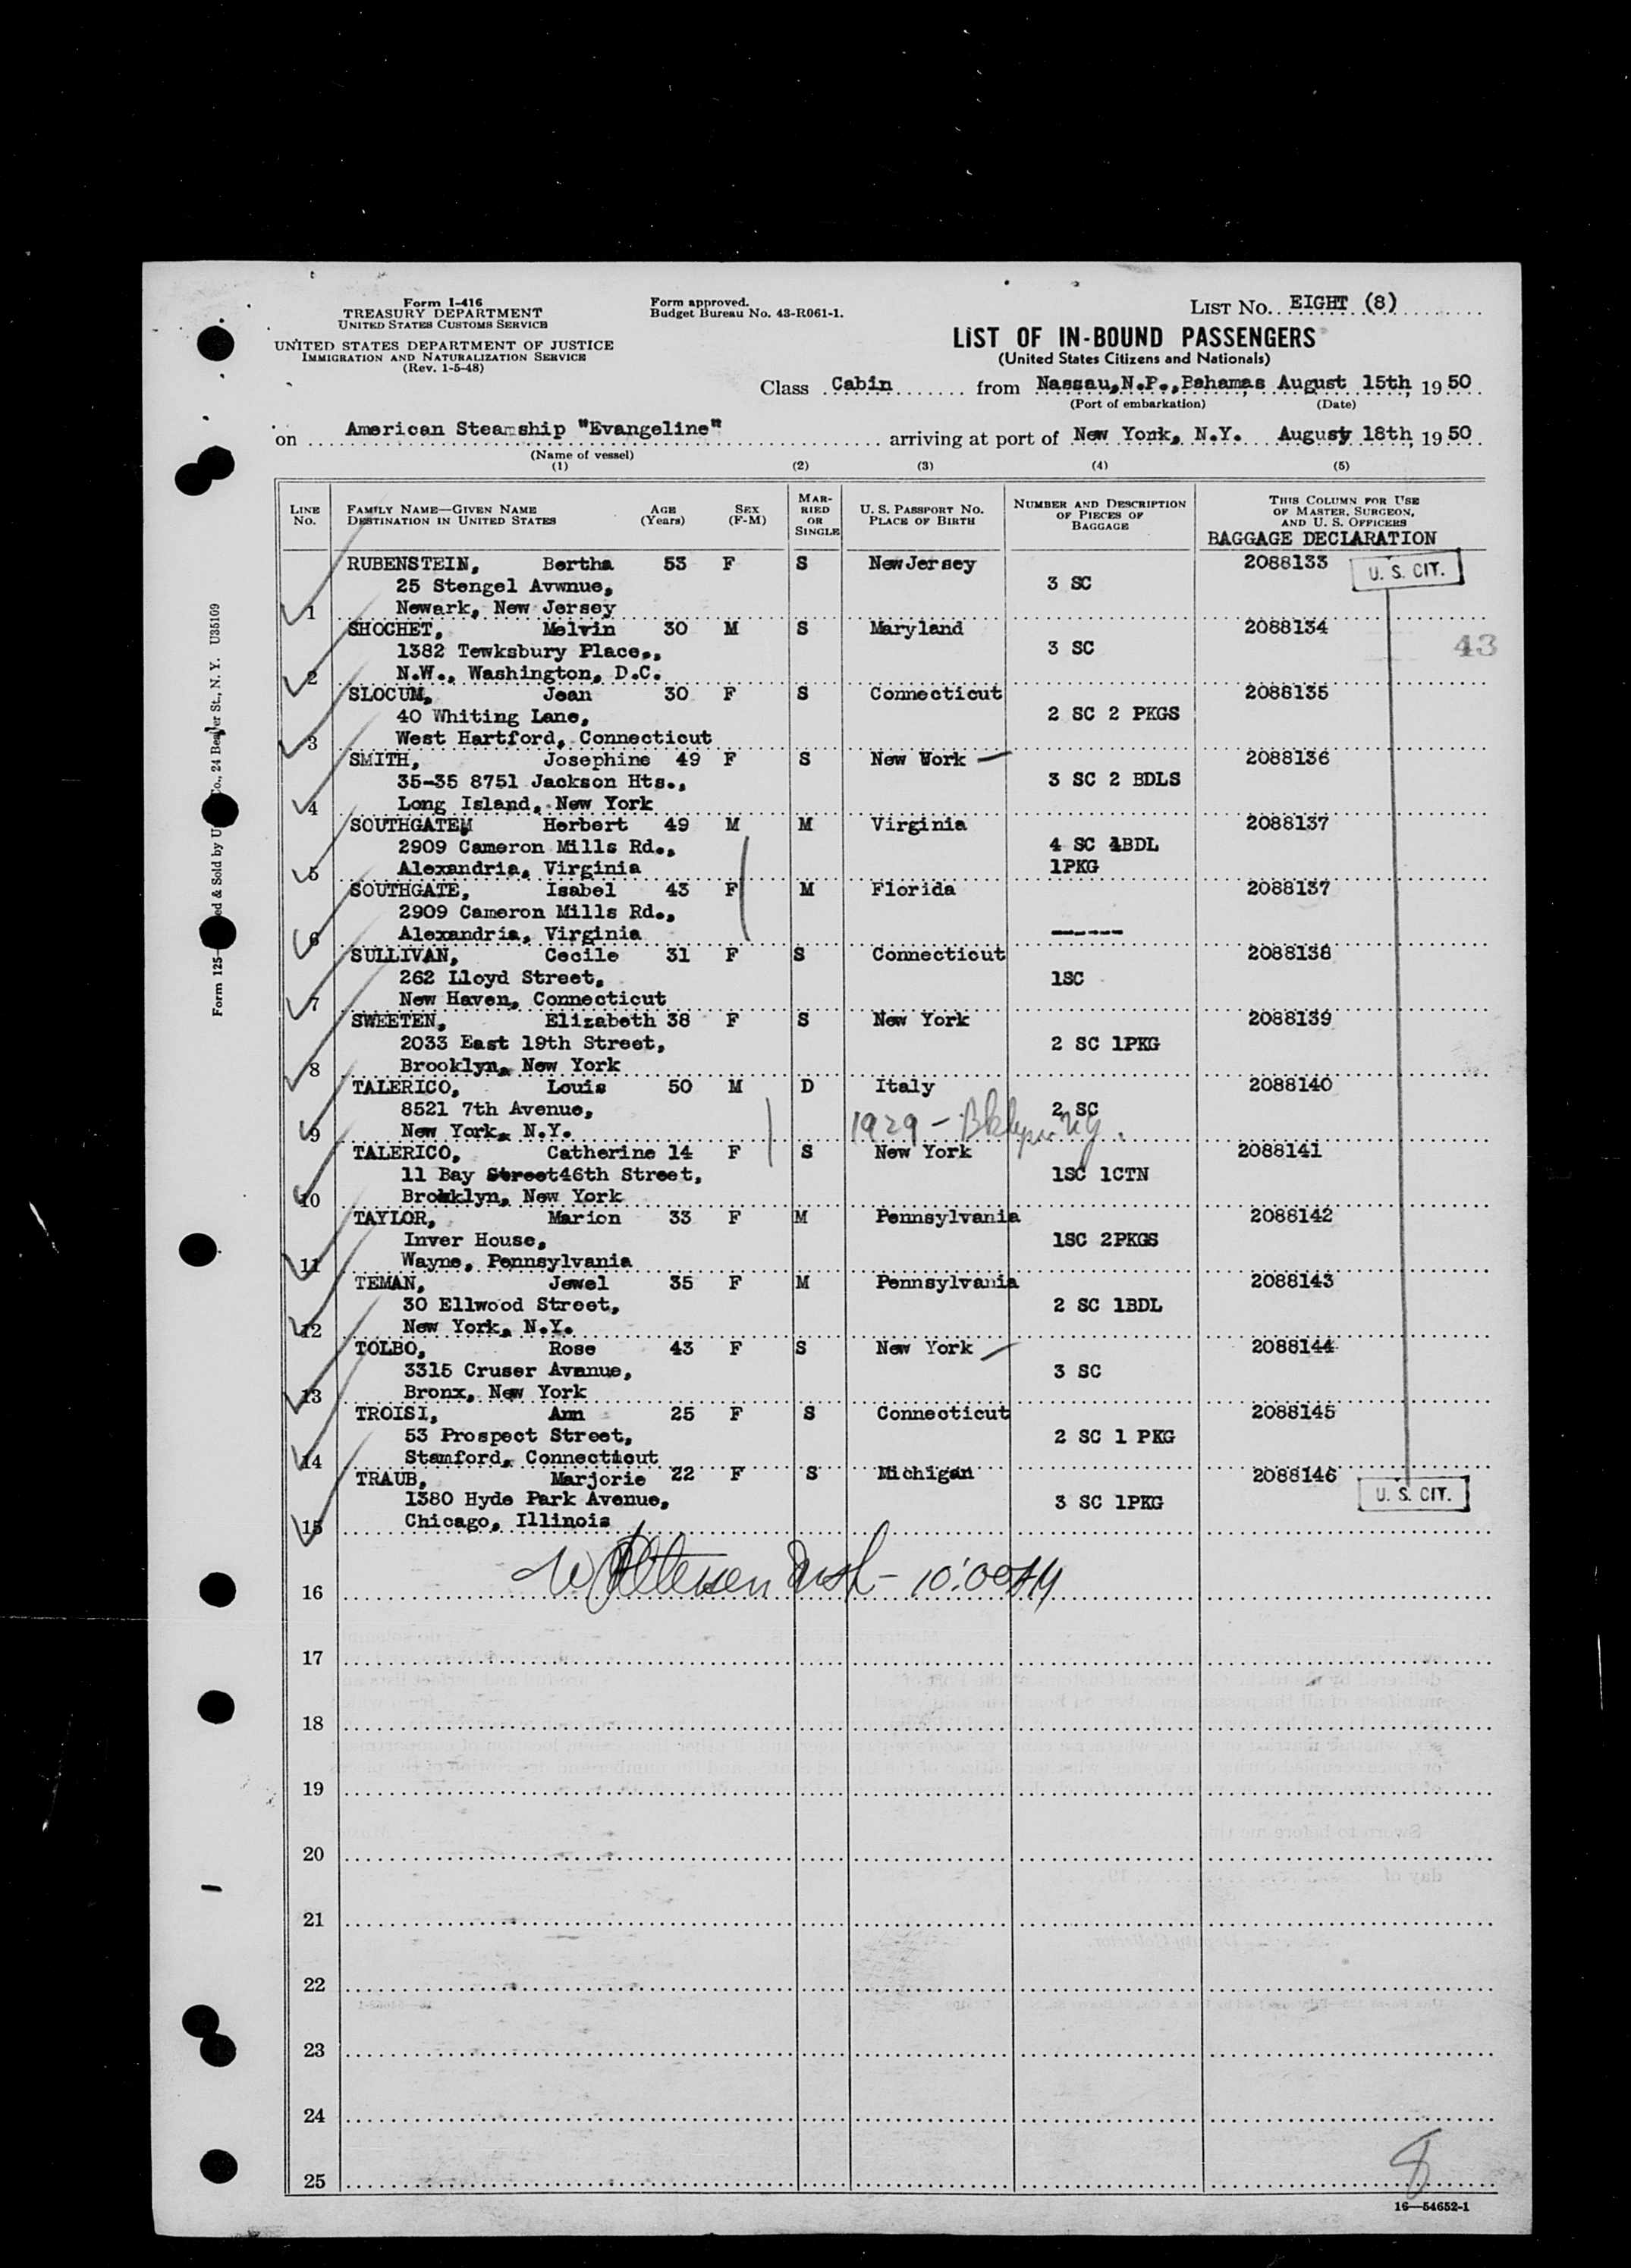 Form I-416
TREASURY DEPARTMENT
UNITED STATES CUSTOMS SERVICE
UNITED STATES DEPARTMENT OF JUSTICE
IMMIGRATION AND NATURALIZATION SERVICE
(Rev. 1-5-48)
Form approved.
Budget Bureau No. 43-R061-1.
LIST No. EIGHT (8)
LIST OF IN-BOUND PASSENGERS
(United States Citizens and Nationals)
Class Cabin from Nassau, N.P., Bahamas, August 15th, 1950
(Port of embarkation) (Date)
on American Steamship "Evangeline" arriving at port of New York, N.Y. August 18th, 1950
(Name of vessel)
(1) (2) (3) (4) (5)
LINE No. FAMILY NAME—GIVEN NAME DESTINATION IN UNITED STATES AGE (Years) SEX (F-M) MARRIED OR SINGLE U. S. PASSPORT NO. PLACE OF BIRTH NUMBER AND DESCRIPTION OF PIECES OF BAGGAGE THIS COLUMN FOR USE OF MASTER, SURGEON, AND U. S. OFFICERS
BAGGAGE DECLARATION
RUBENSTEIN, Bertha 53 F S NewJersey 2088133 U. S. CIT.
25 Stengel Avwnue, 3 SC
1 Newark, New Jersey
SHOCHET, Melvin 30 M S Maryland 2088134
1382 Tewksbury Place., 3 SC 43
2 N.W., Washington, D.C.
SLOCUM, Jean 30 F S Connecticut 2088135
40 Whiting Lane, 2 SC 2 PKGS
3 West Hartford, Connecticut
SMITH, Josephine 49 F S New Work 2088136
35-35 8751 Jackson Hts., 3 SC 2 BDLS
4 Long Island, New York
SOUTHGATE, Herbert 49 M M Virginia 2088137
2909 Cameron Mills Rd., 4 SC 1BDL
5 Alexandria, Virginia 1PKG
SOUTHGATE, Isabel 43 F M Florida 2088137
2909 Cameron Mills Rd.,
6 Alexandria, Virginia ------
SULLIVAN, Cecile 31 F S Connecticut 2088138
262 Lloyd Street, 1SC
7 New Haven, Connecticut
SWEETEN, Elizabeth 38 F S New York 2088139
2033 East 19th Street, 2 SC 1PKG
8 Brooklyn, New York
TALERICO, Louis 50 M D Italy 2088140
8521 7th Avenue, 2 SC
9 New York, N.Y. 1929 - Bklyn NY.
TALERICO, Catherine 14 F S New York 2088141
11 Bay Street46th Street, 1SC 1CTN
10 Brooklyn, New York
TAYLOR, Marion 33 F M Pennsylvania 2088142
Inver House, 1SC 2PKGS
11 Wayne, Pennsylvania
TEMAN, Jewel 35 F M Pennsylvania 2088143
30 Ellwood Street, 2 SC 1BDL
12 New York, N.Y.
TOLBO, Rose 43 F S New York 2088144
3315 Cruser Avenue, 3 SC
13 Bronx, New York
TROISI, Ann 25 F S Connecticut 2088145
53 Prospect Street, 2 SC 1 PKG
14 Stamford, Connecticut
TRAUB, Marjorie 22 F S Michigan 2088146
1380 Hyde Park Avenue, 3 SC 1PKG U. S. CIT.
15 Chicago, Illinois
16 10:00 AM
17
18
19
20
21
22
23
24
25
8
16—54652-1
Form 125— ed & Sold by U Co., 24 Beaver St., N. Y. U35109